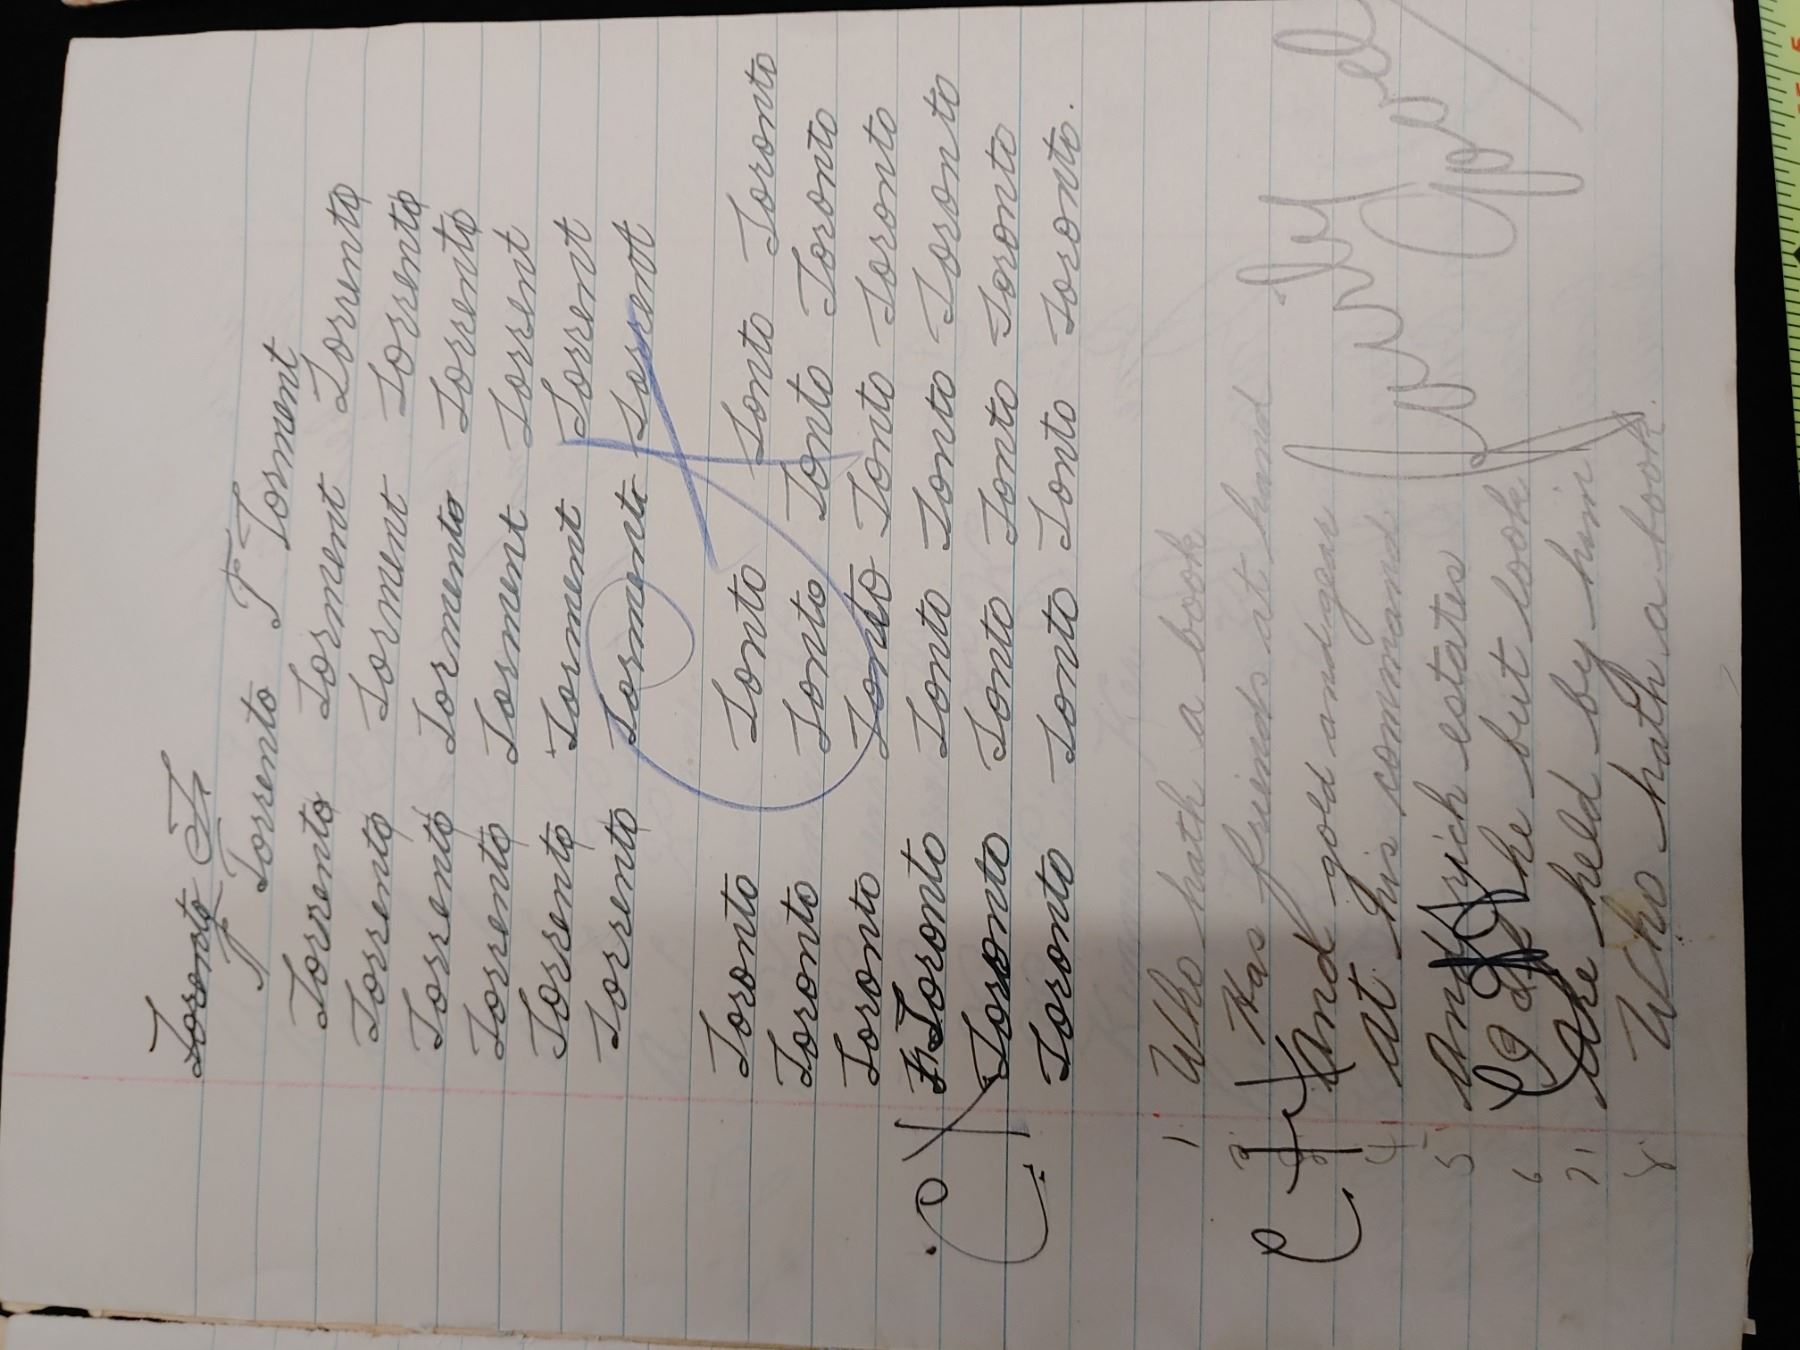 Toronto T
T Torrento T Torment
Torrento Torment Torrento
Torrento Torment Torrento
Torrento Tormento Torrento
Torrento Torment Torrent
Torrento Torment Torrent
Torrento Torment Torrent
Toronto Tonto Tonto Toronto
Toronto Tonto Tonto Toronto
Toronto Tonto Tonto Toronto
Toronto Tonto Tonto Toronto
Toronto Tonto Tonto Toronto
Toronto Tonto Tonto Toronto.
1 Who hath a book
2 Has friends at hand
3 and gold and gear
4 at his command
5 and rich estates
6 he but look
7 are held by him
8 Who hath a book.